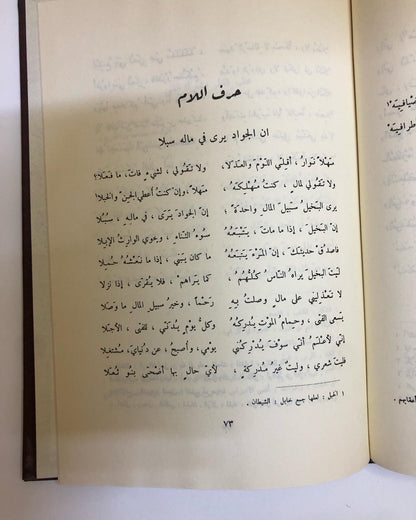 حرف اللام
ان الجواد يرى في ماله سبلا
مَهْلاً نَوَارُ ، أقِلّي اللّوْمَ والعَذَلا ، ولا تَقُولي ، لشيءٍ فاتَ ، ما فَعَلا؟
ولا تَقُولي لمالٍ ، كنتُ مُهْلِكَهُ ، مَهلاً ، وإن كنتُ أُعطي الجِنّ والخَبَلا١
يرى البخيلُ سَبيلَ المالِ واحدةً ، إنّ الجَوادَ يَرَى ، في مالِهِ ، سُبُلا
إنّ البَخيلَ ، إذا ما ماتَ ، يَتْبَعُهُ سُوءُ الثّناءِ ، ويحوي الوارِثُ الإبِلا
فاصدُقْ حديثَكَ ، إنّ المَرْءَ يَتْبَعُهُ ما كان يَبني ، إذا ما نَعْشُهُ حُمِلا
لَيتَ البخيلَ يراهُ النّاسُ كُلُّهُمُ كما يَراهمْ ، فلا يُقْرَى ، إذا نَزَلا
لا تَعْذِليني على مالٍ وصلتُ بِهِ رَحْماً ، وخيرُ سبيلِ المالِ ما وَصَلا
يَسعى الفَتى ، وحِمامُ المَوْتِ يُدرِكُهُ وكلُّ يوْمٍ يُدَنّي ، للفَتى ، الأجَلا
إني لأعْلَمُ أنّي سوْفَ يُدْرِكُني يومي ، وأُصبِحُ ، عن دُنيايَ ، مُشتغِلا
فليتَ شعري ، ولَيتٌ غيرُ مُدرِكةٍ ، لأيّ حالٍ بها أضْحَى بَنُو ثُعَلا
١ الخبل : لعلها جمع خابل : الشيطان .
٧٣